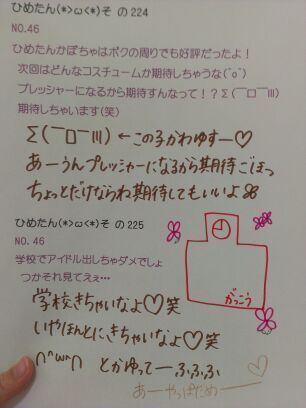 ひめたん(*>ω<*)そ の224
NO.46
ひめたんかぼちゃはボクの周りでも好評だったよ!
次回はどんなコスチュームか期待しちゃうな(˘o˘)
プレッシャーになるから期待すんなって!?Σ(￣ロ￣lll)
期待しちゃいます(笑)
Σ(￣ロ￣lll) ←この子かわゆすー♡
あーうんプレッシャーになるから期待ごぼっ
ちょっとだけならね期待してもいいよ
ひめたん(*>ω<*)そ の225
NO.46
学校でアイドル出しちゃダメでしょ
つかそれ見てえぇ…
がっこう
学校きちゃいなよ♡笑
いやほんとにきちゃいなよ♡笑
∩^ω^∩ とかゆってーふふふ
あーやっぱだめー